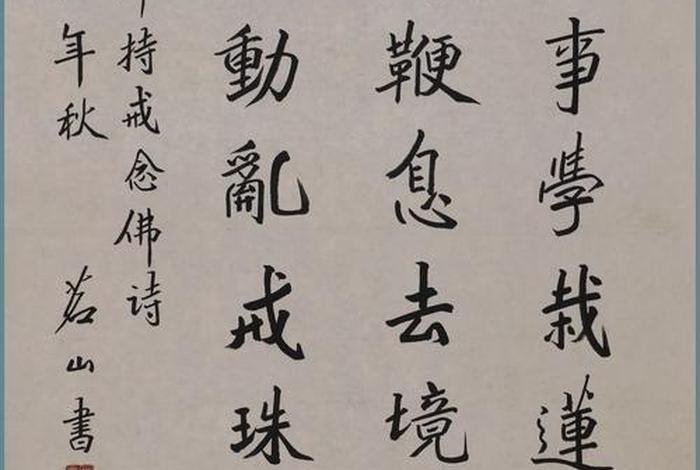 事學栽蓮
鞭息去境
動亂戒珠
持戒念佛诗
年秋
茗山書